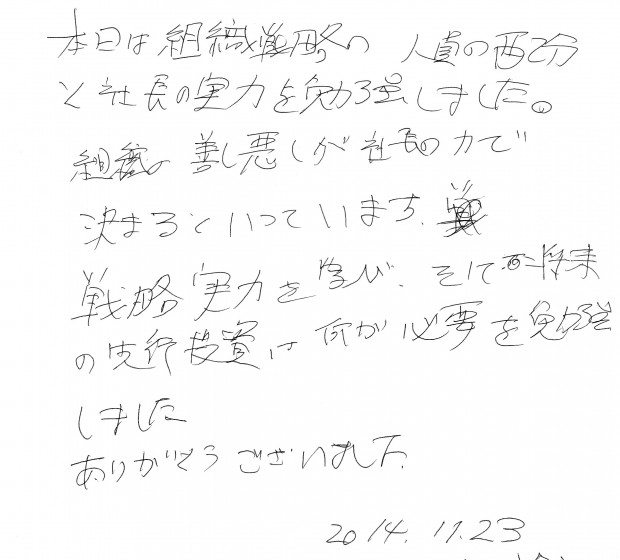 本日は組織戦略の 人員の配分
と社長の実力を勉強しました。
組織の善し悪しが社長の力で
決まるといっています.
戦略実力を学び、そして将来
の先行投資は何が必要を勉強
しました
ありがとうございました
2014.11.23